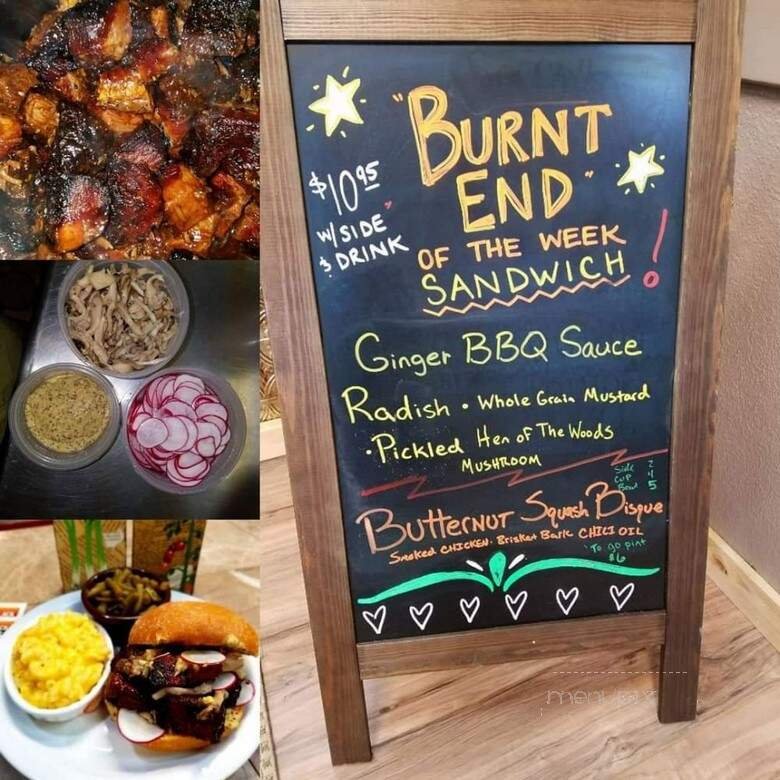 "BURNT
END"
OF THE WEEK
SANDWICH!
$10.95
W/ SIDE
& DRINK
Ginger BBQ Sauce
Radish • Whole Grain Mustard
• Pickled Hen of The Woods
MUSHROOM
Side 2
Cup 4
Bowl 5
Butternut Squash Bisque
Smoked CHICKEN • Brisket Bark CHILI OIL
To go pint
$6
menu